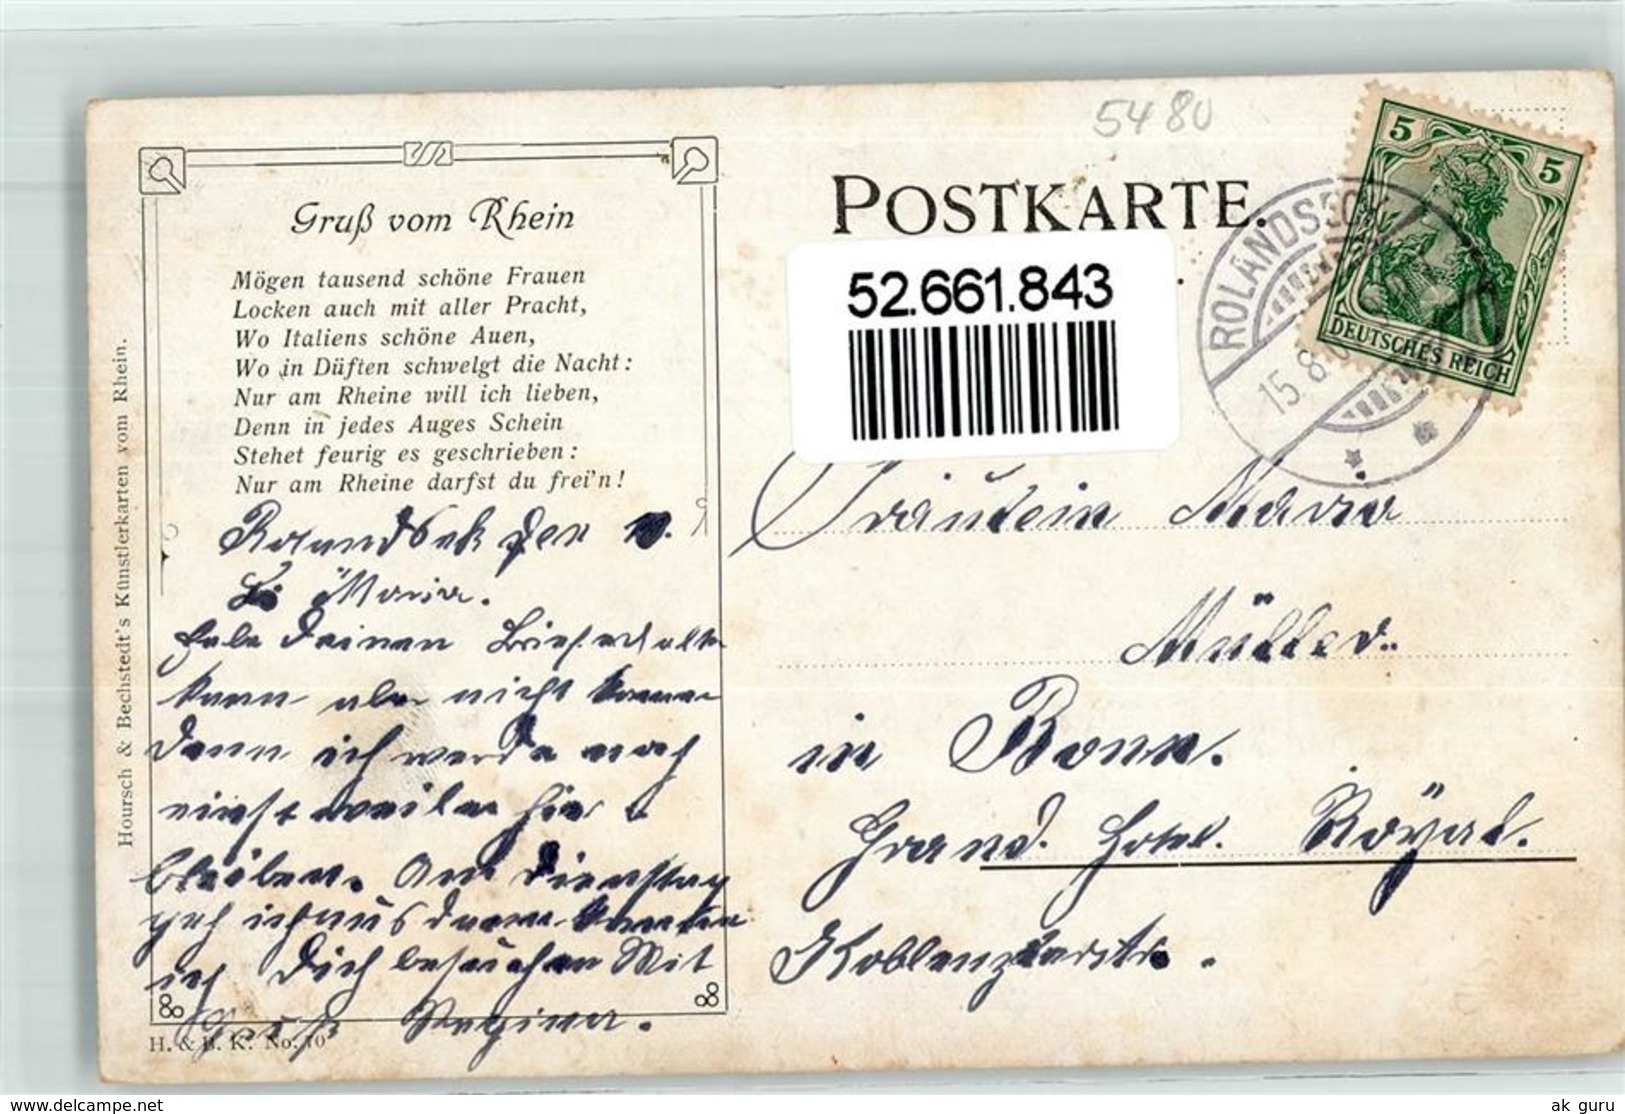 5480
POSTKARTE.
52.661.843
ROLANDSECK
15.8.
5
5
DEUTSCHES REICH
Gruß vom Rhein
Mögen tausend schöne Frauen
Locken auch mit aller Pracht,
Wo Italiens schöne Auen,
Wo in Düften schwelgt die Nacht:
Nur am Rheine will ich lieben,
Denn in jedes Auges Schein
Stehet feurig es geschrieben:
Nur am Rheine darfst du frei'n!
Hoursch & Bechstedt's Künstlerkarten vom Rhein.
den
Maria.
habe Deinen Brief erhalten
kann aber nicht kommen
denn ich werde noch
nicht weiler hier
bleiben. Am Dienstag
geh ich aus dann
ich Dich besuchen Mit
Gruß Regina.
H. & B. K. No. 10
Fräulein Maria
Müller.
in Bonn.
Grand. Hotel. Röyal.
Koblenzerstr.
www.delcampe.net
ak guru